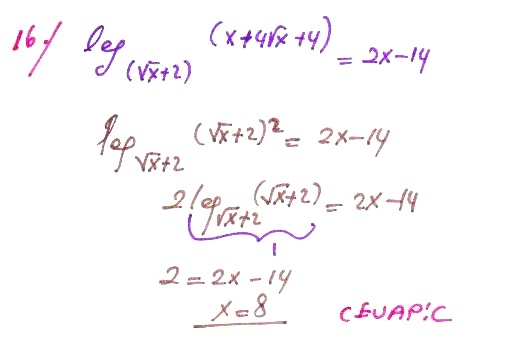 16./ log_(√x+2) (x+4√x+4) = 2x-14
log_√x+2 (√x+2)² = 2x-14
2 log_√x+2 (√x+2) = 2x-14
1
2 = 2x - 14
x = 8 CEVAP:C